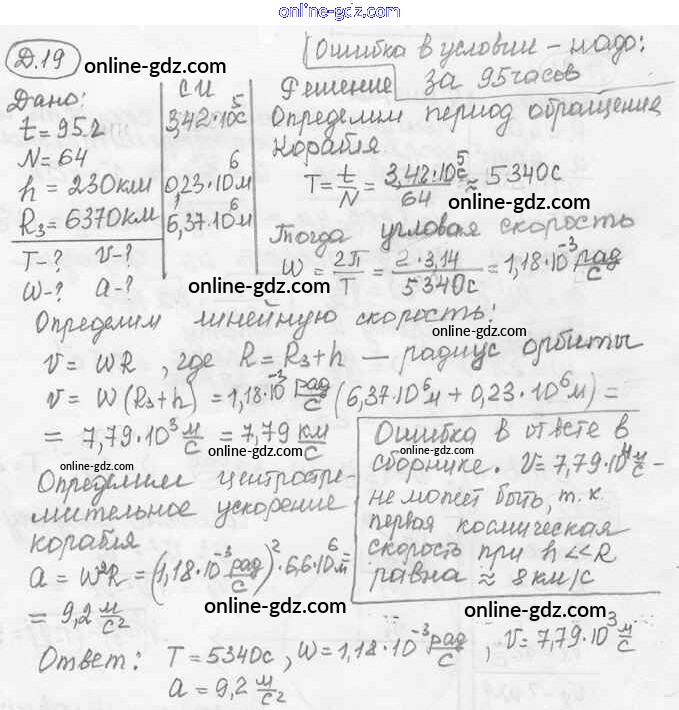 online-gdz.com
Д.19
online-gdz.com
Ошибка в условии – надо:
за 95 часов
Дано:
СИ
Решение
t = 95 г
3,42·10⁵с
Определим период обращения
N = 64
корабля
h = 230 км
0,23·10⁶м
T = t/N = 3,42·10⁵с/64 ≈ 5340с
online-gdz.com
Rз = 6370км
6,37·10⁶м
Тогда угловая скорость
T-? v-?
ω = 2π/T = 2·3,14/5340с = 1,18·10⁻³ рад/с
ω-? a-?
online-gdz.com
Определим линейную скорость:
online-gdz.com
v = ωR, где R = Rз + h — радиус орбиты
v = ω(Rз+h) = 1,18·10⁻³ рад/с (6,37·10⁶м + 0,23·10⁶м) =
= 7,79·10³ м/с = 7,79 км/с
online-gdz.com
online-gdz.com
Ошибка в ответе в
сборнике. v = 7,79·10⁴ м/с –
не может быть, т.к.
первая космическая
скорость при h << R
равна ≈ 8 км/с
Определим центростре-
мительное ускорение
online-gdz.com
корабля
a = ω²R = (1,18·10⁻³ рад/с)²·6,6·10⁶м =
= 9,2 м/с²
online-gdz.com
online-gdz.com
Ответ: T = 5340с, ω = 1,18·10⁻³ рад/с, v = 7,79·10³ м/с
a = 9,2 м/с²
online-gdz.com
online-gdz.com